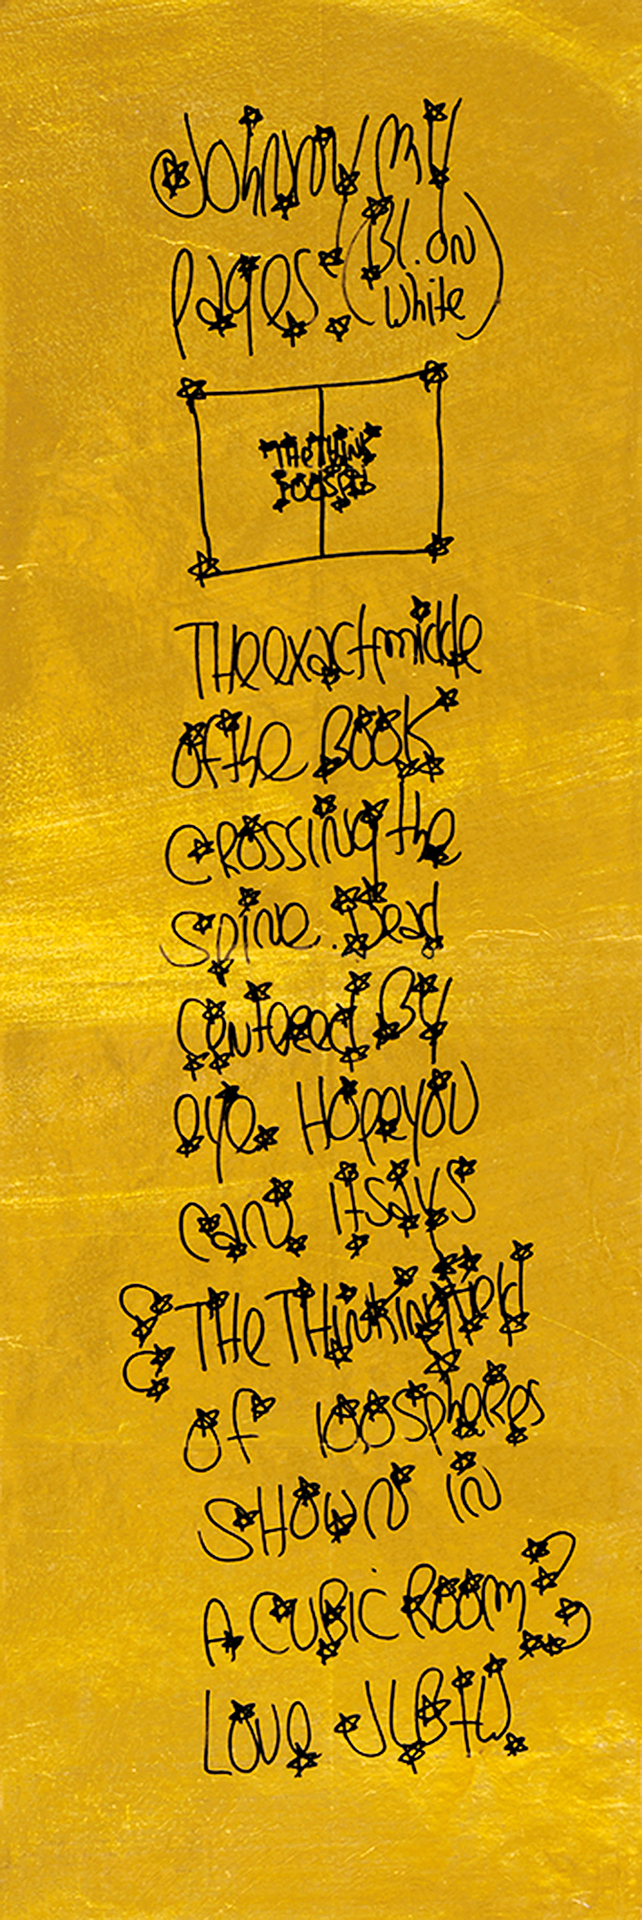 Johnny My
Pages: (Bl. on
white)
THe THink
100 SPH
THe exact middle
of the BOOK
CROSSing the
Spine. Dead
Centered By
eye. HOPe you
can. it says
"THe THinking field
of 100 spheres
SHOWN IN
A CUBIC ROOM"
Love JLBTW